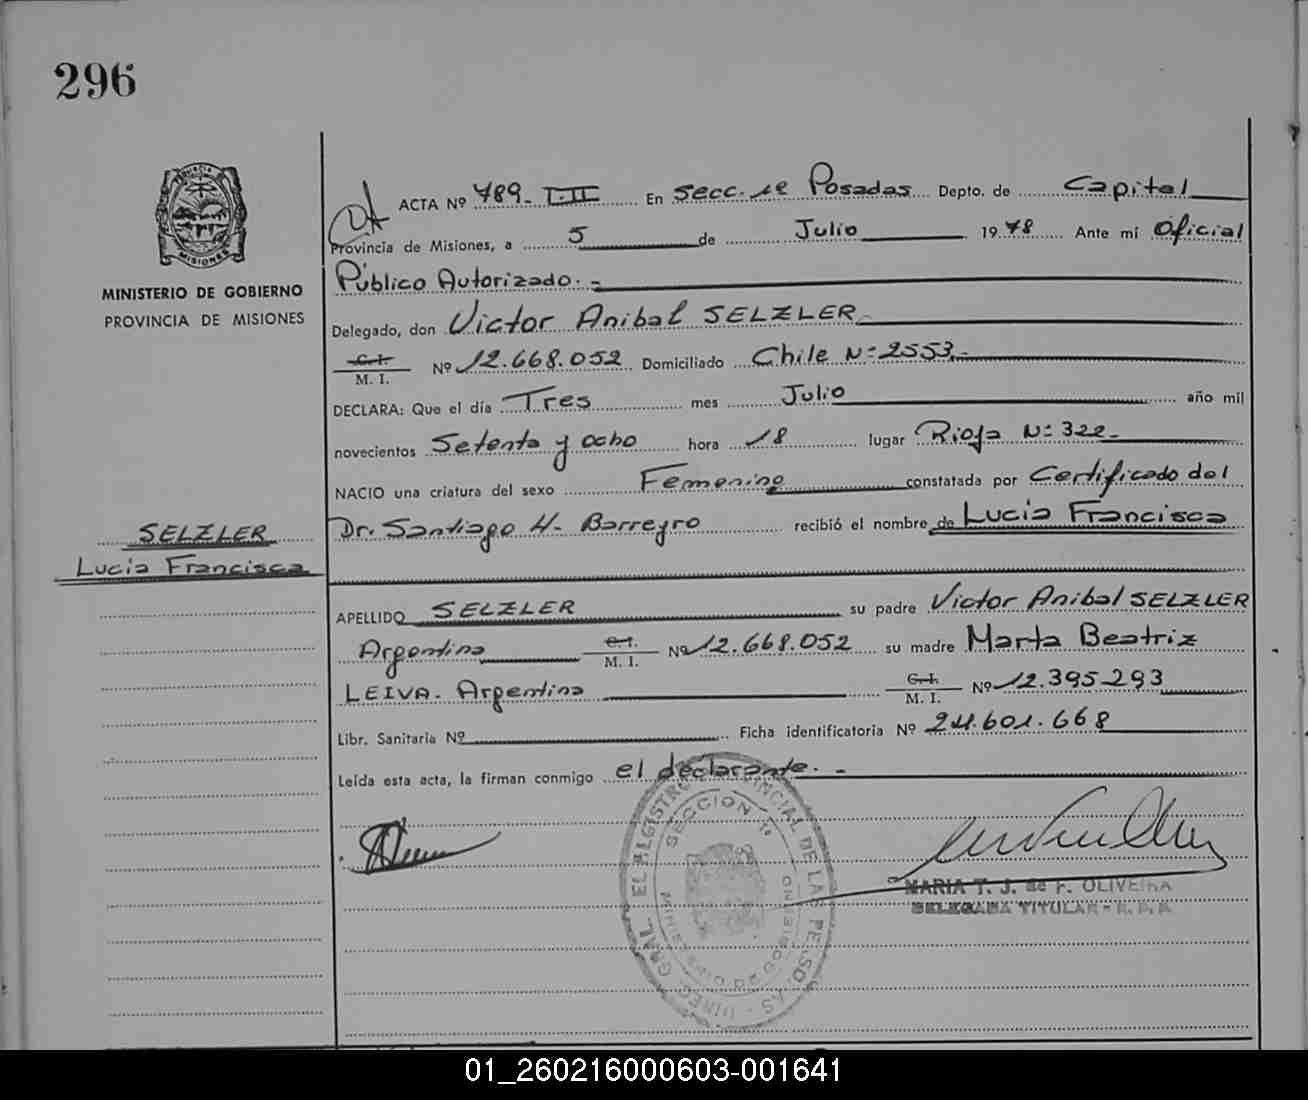 296
MISIONES
MINISTERIO DE GOBIERNO
PROVINCIA DE MISIONES
SELZLER
Lucia Francisca
ACTA Nº 789- T.II En Secc. 1º Posadas Depto. de Capital
Provincia de Misiones, a 5 de Julio 1978 Ante mi Oficial
Público Autorizado.-
Delegado, don Victor Anibal SELZLER
C.I. M. I. Nº 12.668.052 Domiciliado Chile Nº 2553.-
DECLARA: Que el día Tres mes Julio año mil
novecientos Setenta y ocho hora 18 lugar Rioja Nº 322.-
NACIO una criatura del sexo Femenino constatada por Certificado del
Dr. Santiago H. Barreyro recibió el nombre de Lucia Francisca
APELLIDO SELZLER su padre Victor Anibal SELZLER
Argentino C.I. M. I. Nº 12.668.052 su madre Marta Beatriz
LEIVA. Argentina C.I. M. I. Nº 12.395.293
Libr. Sanitaria Nº Ficha identificatoria Nº 24.601.668
Leída esta acta, la firman conmigo el declarante.-
SECCION 1ª
MARIA T. J. de F. OLIVEIRA
DELEGADA TITULAR - R. P. P.
01_260216000603-001641